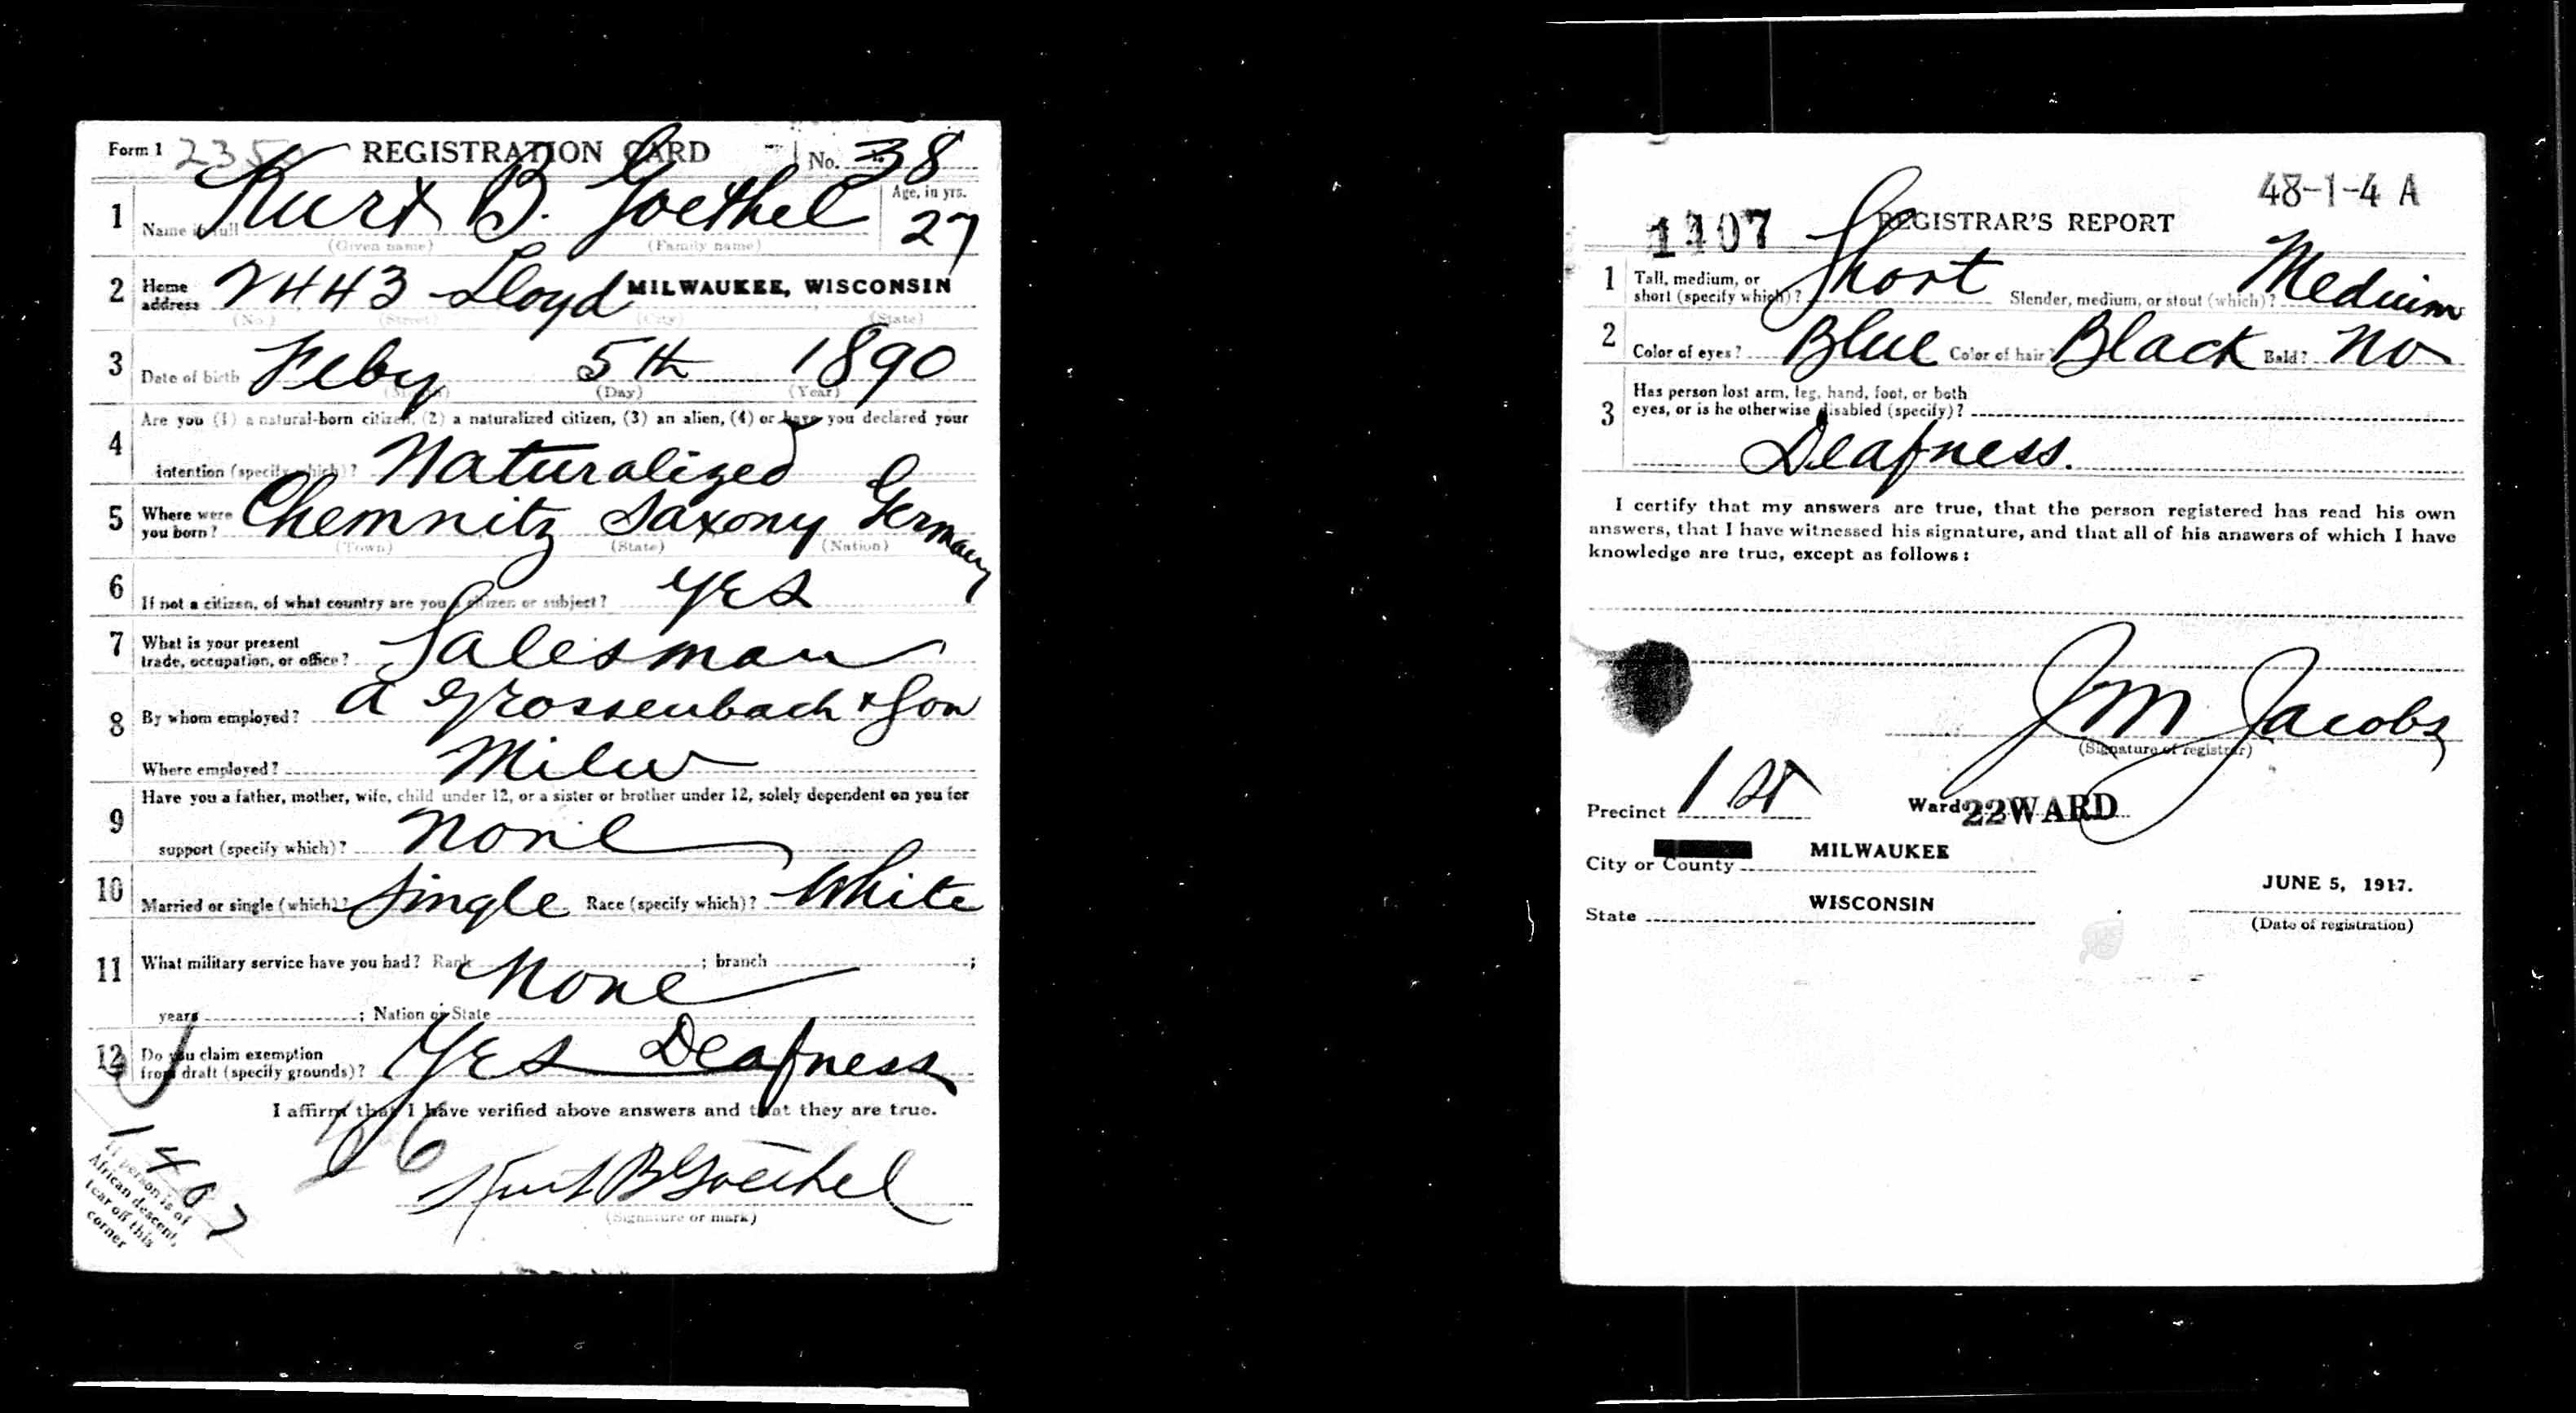 Form 1 235 REGISTRATION CARD No. 38
1 Name in full Kurt B. Goethel Age, in yrs. 27
(Given name) (Family name)
2 Home address 2443 Lloyd MILWAUKEE, WISCONSIN
(No.) (Street) (City) (State)
3 Date of birth Feby 5th 1890
(Month) (Day) (Year)
Are you (1) a natural-born citizen, (2) a naturalized citizen, (3) an alien, (4) or have you declared your
4 intention (specify which)? Naturalized
5 Where were you born? Chemnitz Saxony Germany
(Town) (State) (Nation)
6 If not a citizen, of what country are you a citizen or subject? Yes
7 What is your present trade, occupation, or office? Salesman
8 By whom employed? A Grossenbach & Son
Where employed? Milw
Have you a father, mother, wife, child under 12, or a sister or brother under 12, solely dependent on you for
9 support (specify which)? None
10 Married or single (which)? Single Race (specify which)? White
11 What military service have you had? Rank None ; branch ;
years ; Nation or State
12 Do you claim exemption from draft (specify grounds)? Yes Deafness
I affirm that I have verified above answers and that they are true.
Kurt B Goethel
(Signature or mark)
1407
If person is of
African descent,
tear off this
corner
48-1-4 A
1407 REGISTRAR'S REPORT
1 Tall, medium, or short (specify which)? Short Slender, medium, or stout (which)? Medium
2 Color of eyes? Blue Color of hair? Black Bald? No
3 Has person lost arm, leg, hand, foot, or both
eyes, or is he otherwise disabled (specify)?
Deafness.
I certify that my answers are true, that the person registered has read his own
answers, that I have witnessed his signature, and that all of his answers of which I have
knowledge are true, except as follows:
J M Jacobs
(Signature of registrar)
Precinct 1st Ward 22 WARD
City or County MILWAUKEE
JUNE 5, 1917.
State WISCONSIN
(Date of registration)